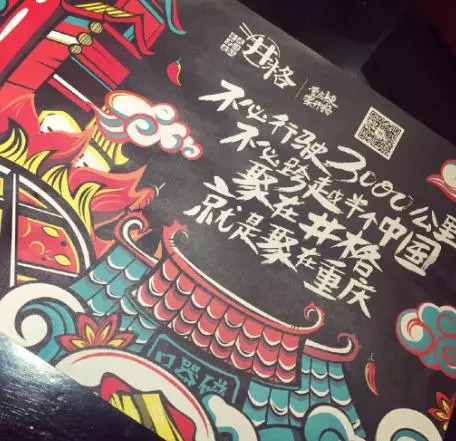 井格
不必行驶3000公里
不必跨越半个中国
聚在井格
就是聚在重庆
磁器口